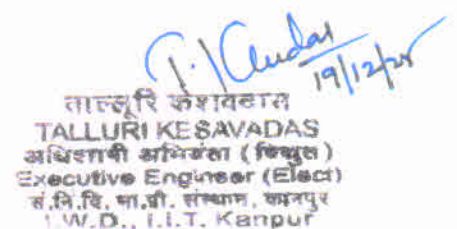 19/12/25
ताल्लूरि केशवदास
TALLURI KESAVADAS
अधिशाषी अभियंता (विद्युत)
Executive Engineer (Elect)
सं.नि.वि. भा.प्रौ. संस्थान, कानपुर
I.W.D., I.I.T. Kanpur